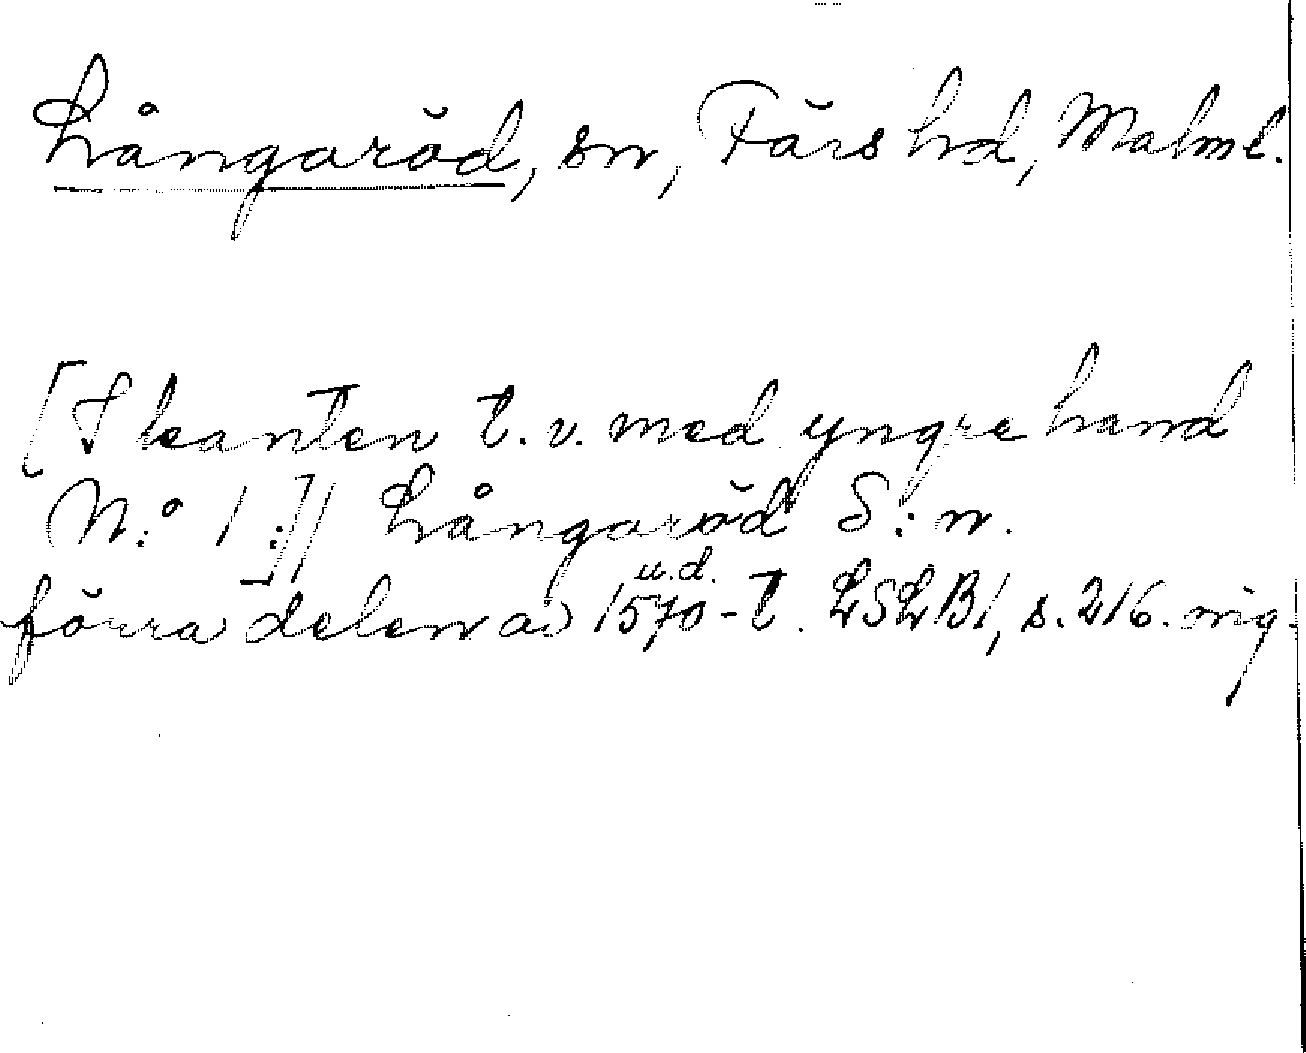 Långaröd, sn, Färs hd, Malml.
[I kanten t.v. med yngre hand
N:o 1:]/ Långaröd S:n.
u.d.
förra delen av 1570-t. LSLB1, s. 216. orig.